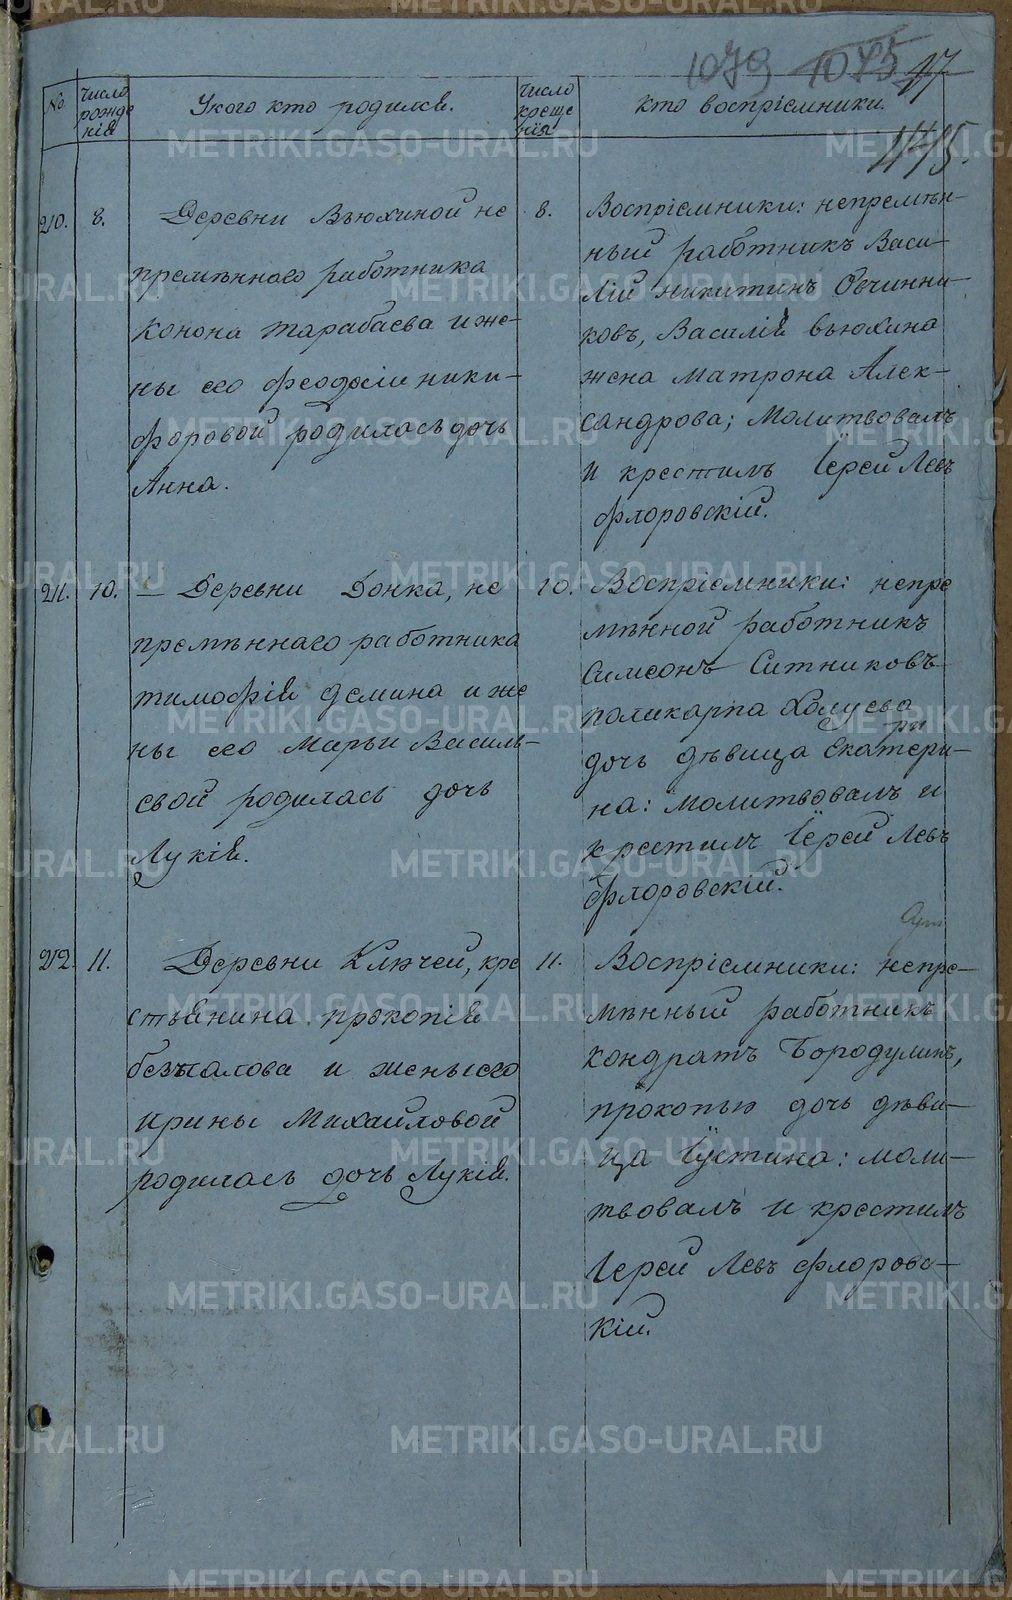 1079 1075 17
445.
№
Число рожденія
У кого кто родился.
Число крещенія
Кто воспріемники.
210. 8.
Деревни Вьюхиной не
премѣннаго работника
Конона Тарабаева и же-
ны его Феодосіи Ники-
форовой родилась дочь
Анна.
8.
Воспріемники: непремѣн-
ный работникъ Васи-
лій Никитинъ Овчинни-
ковъ, Василія Вьюхина
жена Матрона Алек-
сандрова; Молитвовалъ
и крестилъ Іерей Левъ
Флоровскій.
211. 10.
— Деревни Донка, не
премѣннаго работника
Тимофія Демина и же
ны его Марьи Василь-
евой родилась дочь
Лукія.
10.
Воспріемники: непре
мѣнной работникъ
Симеонъ Ситниковъ
Поликарпа Холуева
дочь дѣвица Екатери-
на: молитвовалъ и
крестилъ Іерей Левъ
Флоровскій.
212. 11.
Деревни Ключей, кре
стьянина Прокопія
Безпалова и жены его
Ирины Михайловой
родилась дочь Лукія.
11.
Воспріемники: непре-
мѣнный работникъ
Кондратъ Бородулинъ,
Прокопья дочь дѣви-
ца Іустина: моли-
твовалъ и крестилъ
Іерей Левъ Флоровс-
кій.
METRIKI.GASO-URAL.RU